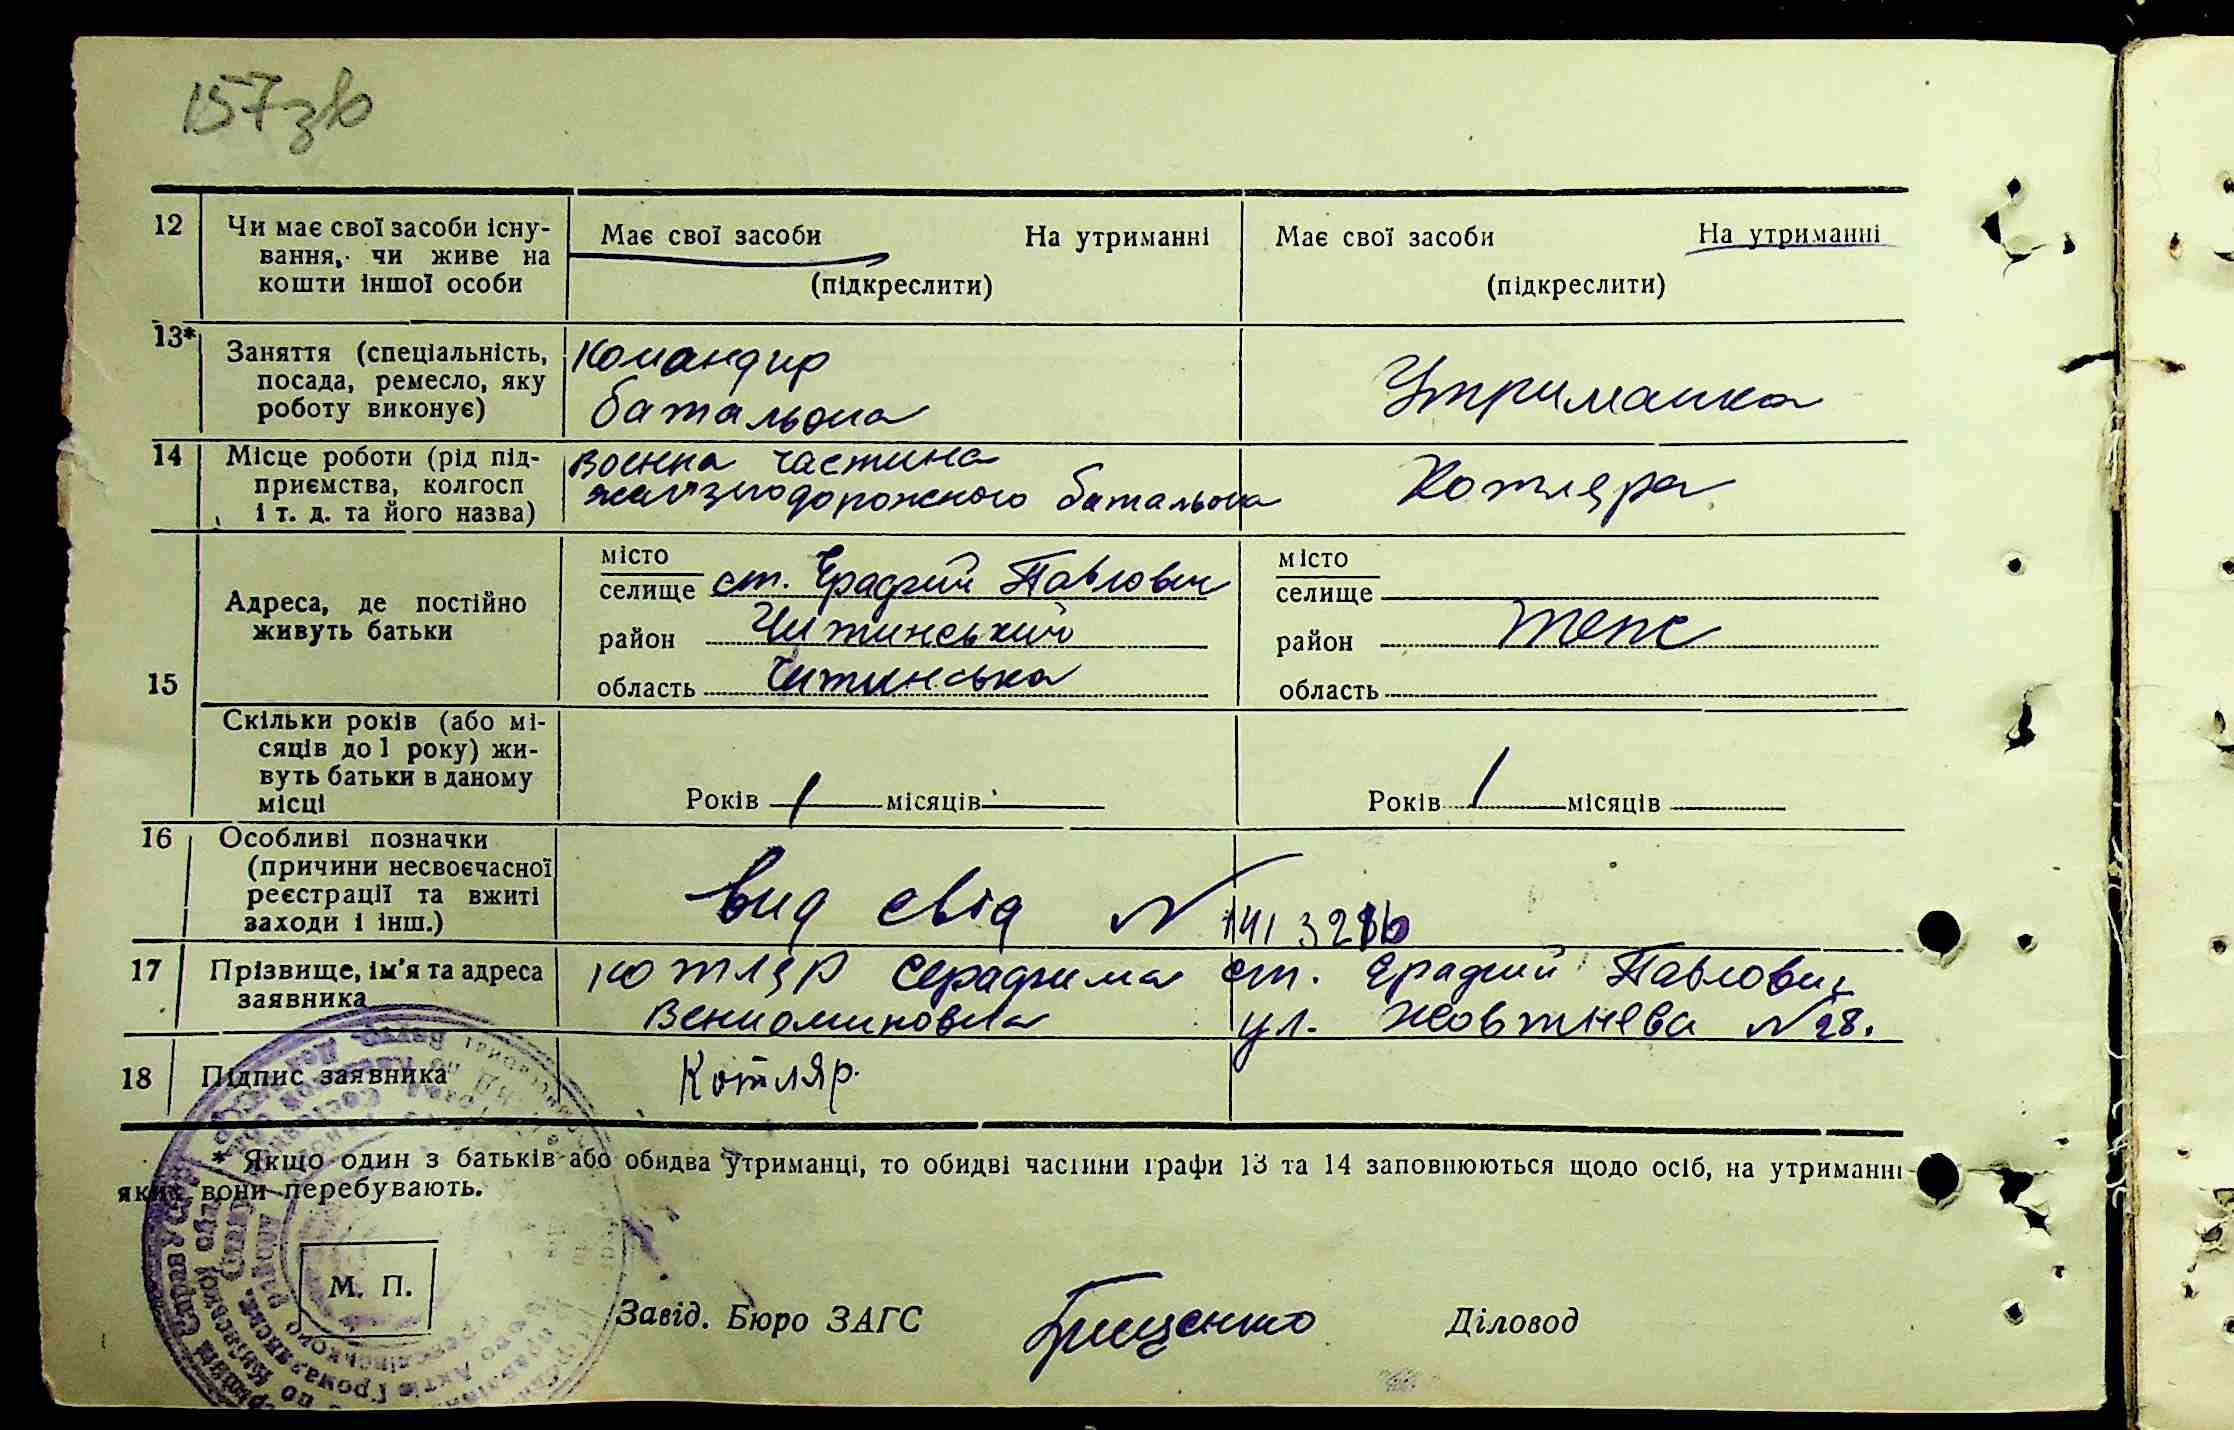 157зв
12 Чи має свої засоби існу- Має свої засоби На утриманні Має свої засоби На утриманні
вання, чи живе на
кошти іншої особи (підкреслити) (підкреслити)
13* Заняття (спеціальність, Командир
посада, ремесло, яку Утриманка
роботу виконує) батальона
14 Місце роботи (рід під- Военна частина
приємства, колгосп Котляра
і т. д. та його назва) желізнодорожного батальона
15
Адреса, де постійно
живуть батьки
місто
селище ст. Ерадгий Павлович
район Читинський
область Читинська
місто
селище
район теж
область
Скільки років (або мі-
сяців до 1 року) жи-
вуть батьки в даному
місці
Років 1 місяців Років 1 місяців
16 Особливі позначки
(причини несвоєчасної
реєстрації та вжиті Вид свід №
заходи і інш.)
17 Прізвище, ім'я та адреса Котляр Серафима ст. Ерадгий Павлович
заявника Вениоминовна ул. Жовтнева №28.
18 Підпис заявника Котляр.
* Якщо один з батьків або обидва утриманці, то обидві частини графи 13 та 14 заповнюються щодо осіб, на утриманні
яких вони перебувають.
М. П.
Завід. Бюро ЗАГС Грищенко Діловод